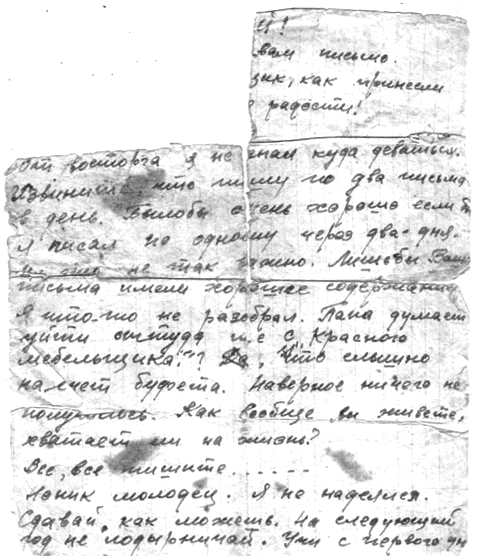 й!
вам письмо.
щик, как принесли
радости!
От восторга я не знал куда деваться.
Извините что пишу по два письма
в день. Былобы очень хорошо если б
я писал по одному через два-дня.
не так важно. Лишьбы Ваши
письма имели хорошее содержание
Я что-то не разобрал. Папа думает
уйти оттуда т.е с „Красного
мебельщика"? Да, что слышно
на счет буфета. Наверное ничего не
получилось. Как вообще вы живете,
хватает ли на жизнь?
Все, все пишите......
молодец. Я не надеялся.
Сдавай, как можешь. На следующий
год не лодырничай. Учи с первого дн